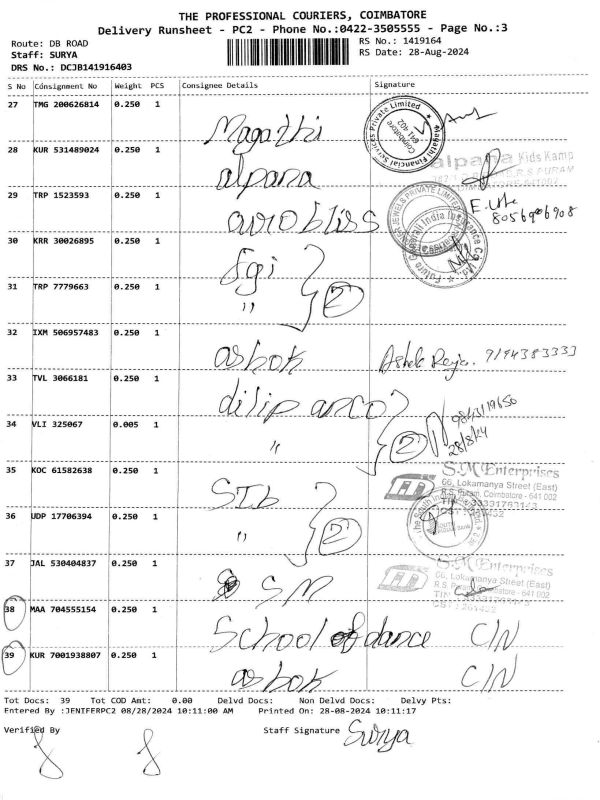 THE PROFESSIONAL COURIERS, COIMBATORE
Delivery Runsheet - PC2 - Phone No.:0422-3505555 - Page No.:3
Route: DB ROAD
RS No.: 1419164
Staff: SURYA
RS Date: 28-Aug-2024
DRS No.: DCJB141916403
S No Consignment No Weight PCS Consignee Details Signature
27 TMG 200626814 0.250 1 Magathi
Magathi Financial Services Private Limited
Coimbatore
641 402
28 KUR 531489024 0.250 1 alpana
alpana Kids Kamp
R.S PURAM
29 TRP 1523593 0.250 1 aurobliss
JEWELS PRIVATE LIMITED
E. Usha
8056906908
30 KRR 30026895 0.250 1 fgi
Future Generali India Insurance Co Ltd
31 TRP 7779663 0.250 1 " 2
32 IXM 506957483 0.250 1 ashok Ashok Raja. 9194383333
33 TVL 3066181 0.250 1 dilip anco
34 VLI 325067 0.005 1 " 2
28/8/24
35 KOC 61582638 0.250 1 SIB
S.M Enterprises
66, Lokamanya Street (East)
R.S. Puram, Coimbatore - 641 002
36 UDP 17706394 0.250 1 " 2
The South Indian Bank Ltd.
37 JAL 530404837 0.250 1 SM
S.M Enterprises
66, Lokamanya Street (East)
R.S. Puram, Coimbatore - 641 002
38 MAA 704555154 0.250 1 School of dance C/N
39 KUR 7001938807 0.250 1 ashok C/N
Tot Docs: 39 Tot COD Amt: 0.00 Delvd Docs: Non Delvd Docs: Delvy Pts:
Entered By :JENIFERPC2 08/28/2024 10:11:00 AM Printed On: 28-08-2024 10:11:17
Verified By Staff Signature Surya